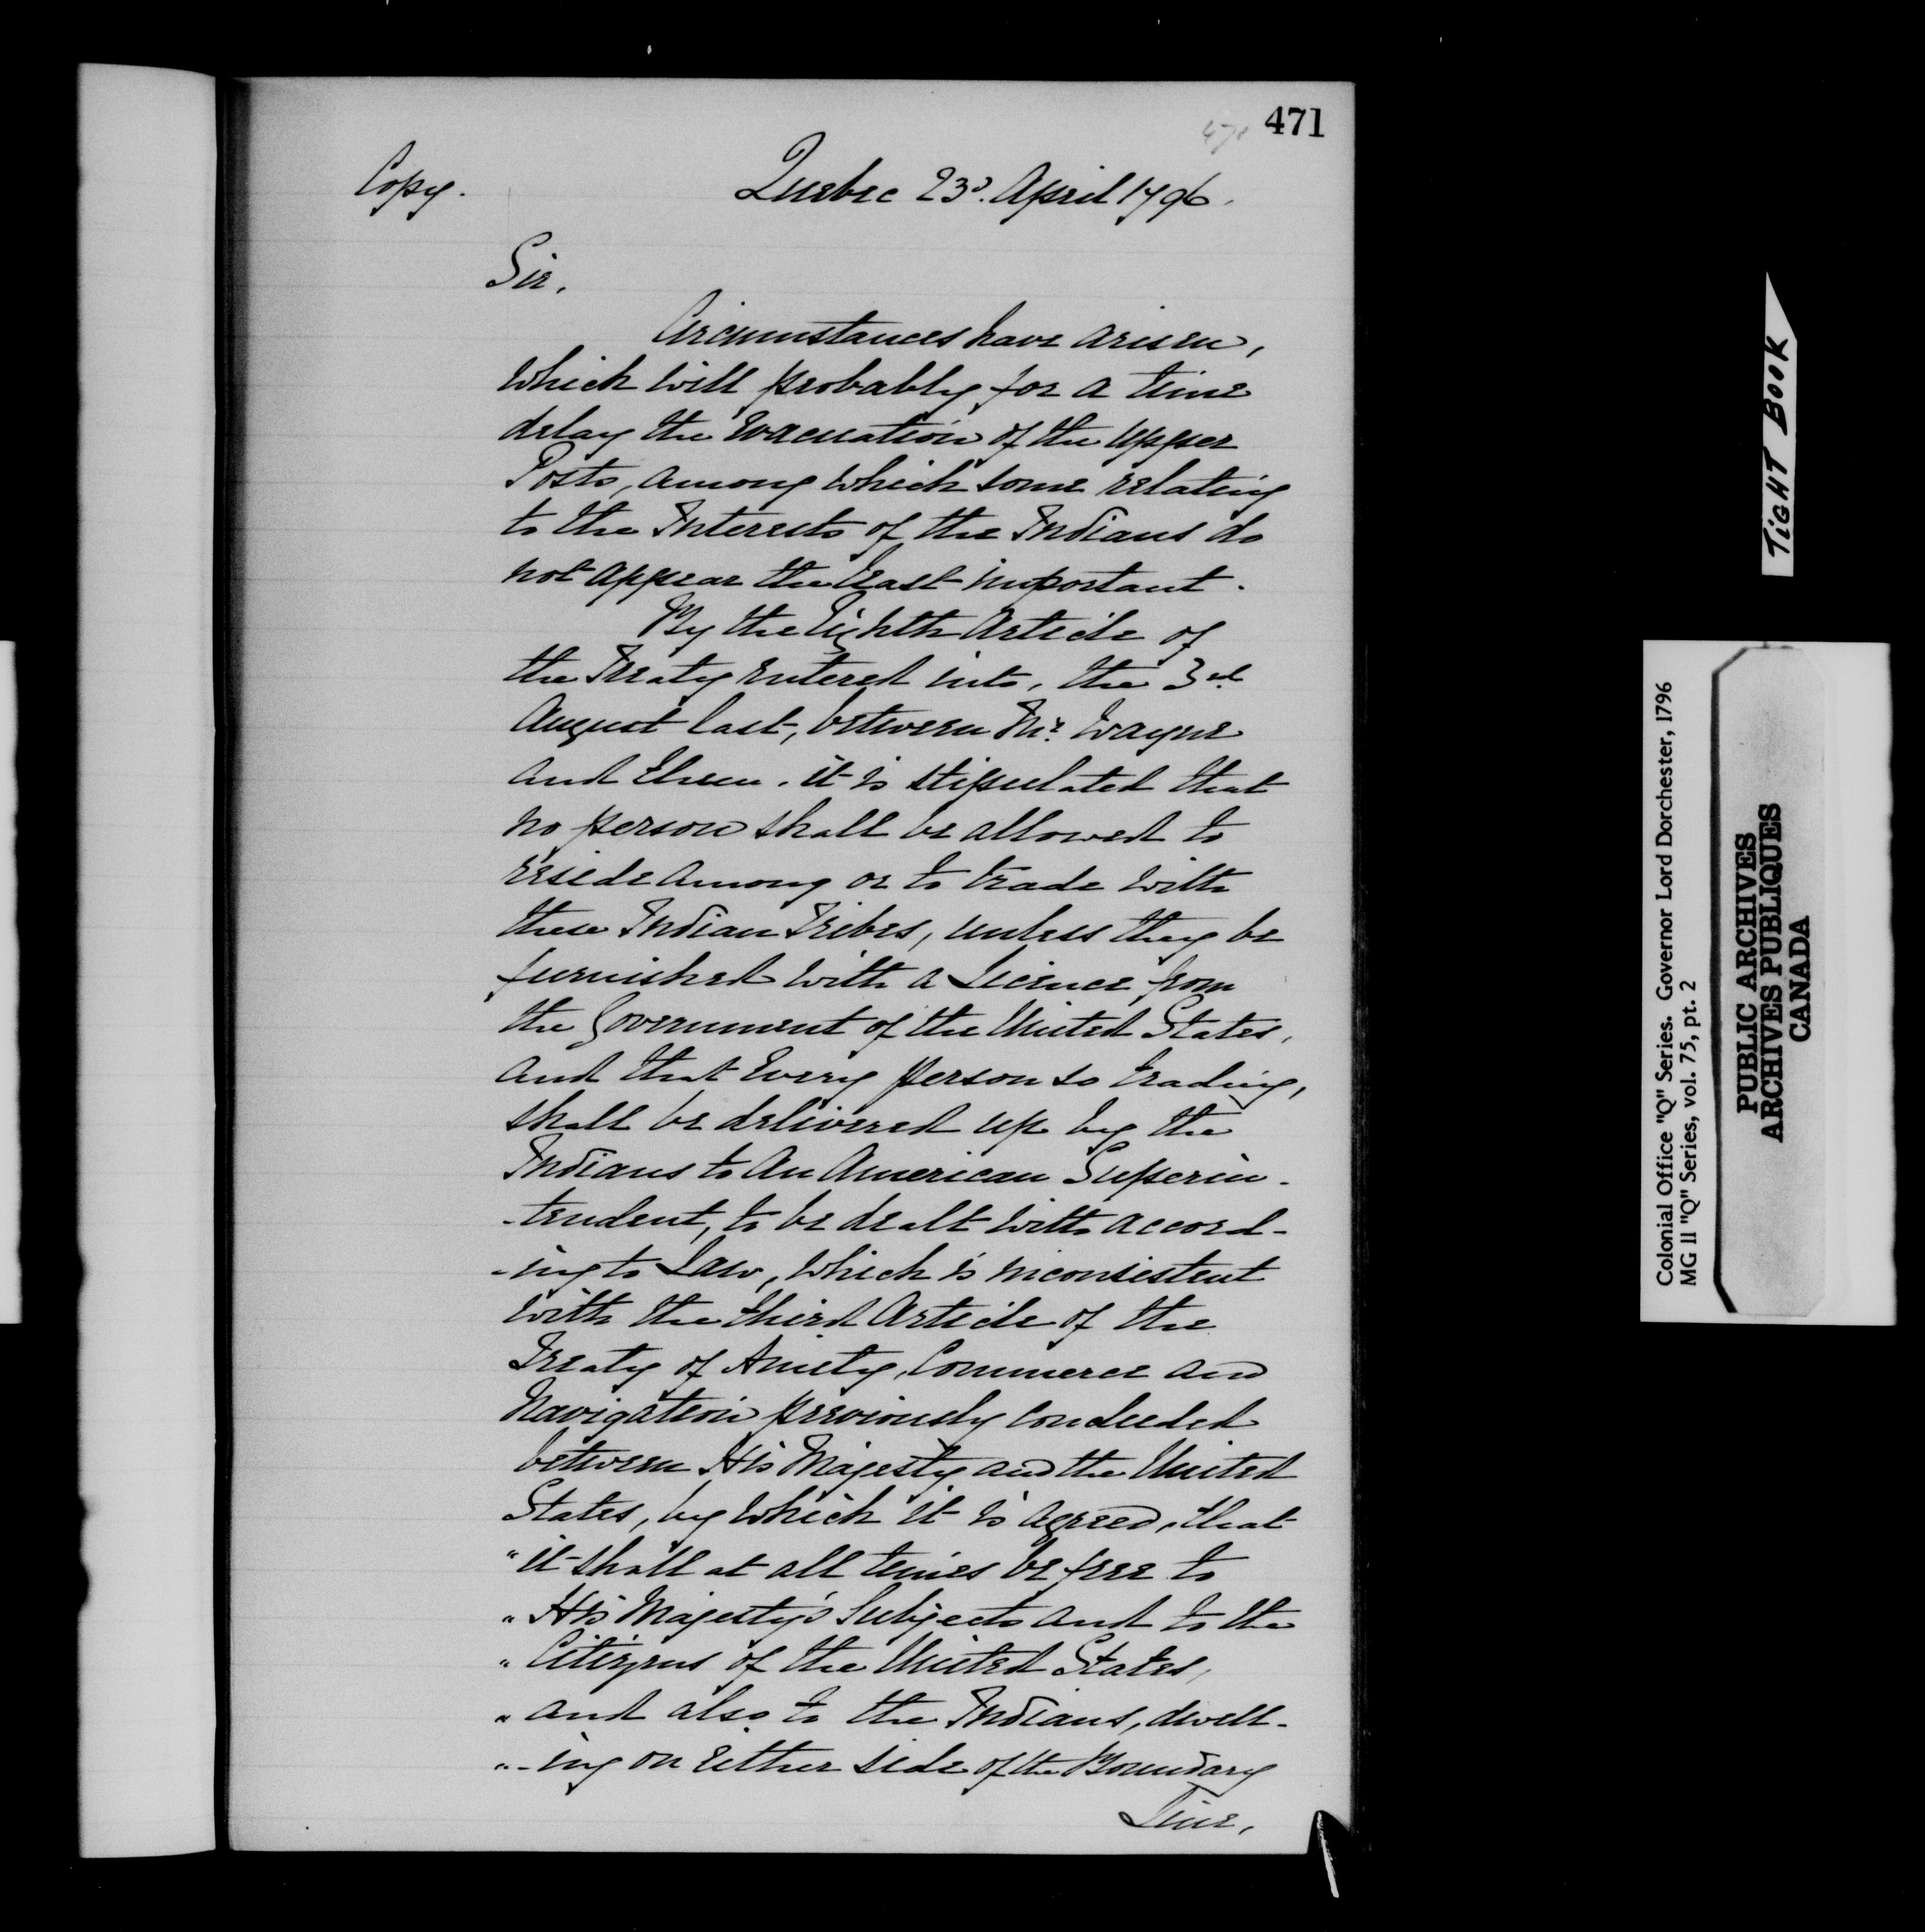 471
471
Copy.
Quebec 23d. April 1796.
Sir,
Circumstances have arisen,
which will probably for a time
delay the Evacuation of the Upper
Posts, among which some relating
to the Interests of the Indians do
not appear the least important.
By the Eighth Article of
the Treaty entered into, the 3rd.
August last, between Mr. Wayne
and them, it is stipulated that
no person shall be allowed to
reside among or to trade with
these Indian Tribes, unless they be
furnished with a Licence from
the Government of the United States,
and that every person so trading,
shall be delivered up by the
Indians to an American Superin-
-tendent, to be dealt with accord-
-ing to Law, which is inconsistent
with the third Article of the
Treaty of Amity, Commerce and
Navigation previously concluded
between His Majesty and the United
States, by which it is agreed, that
"it shall at all times be free to
"His Majesty's Subjects and to the
"Citizens of the United States,
"and also to the Indians, dwell-
"-ing on either side of the Boundary
Line,
TIGHT BOOK
Colonial Office "Q" Series. Governor Lord Dorchester, 1796
MG 11 "Q" Series, vol. 75, pt. 2
PUBLIC ARCHIVES
ARCHIVES PUBLIQUES
CANADA